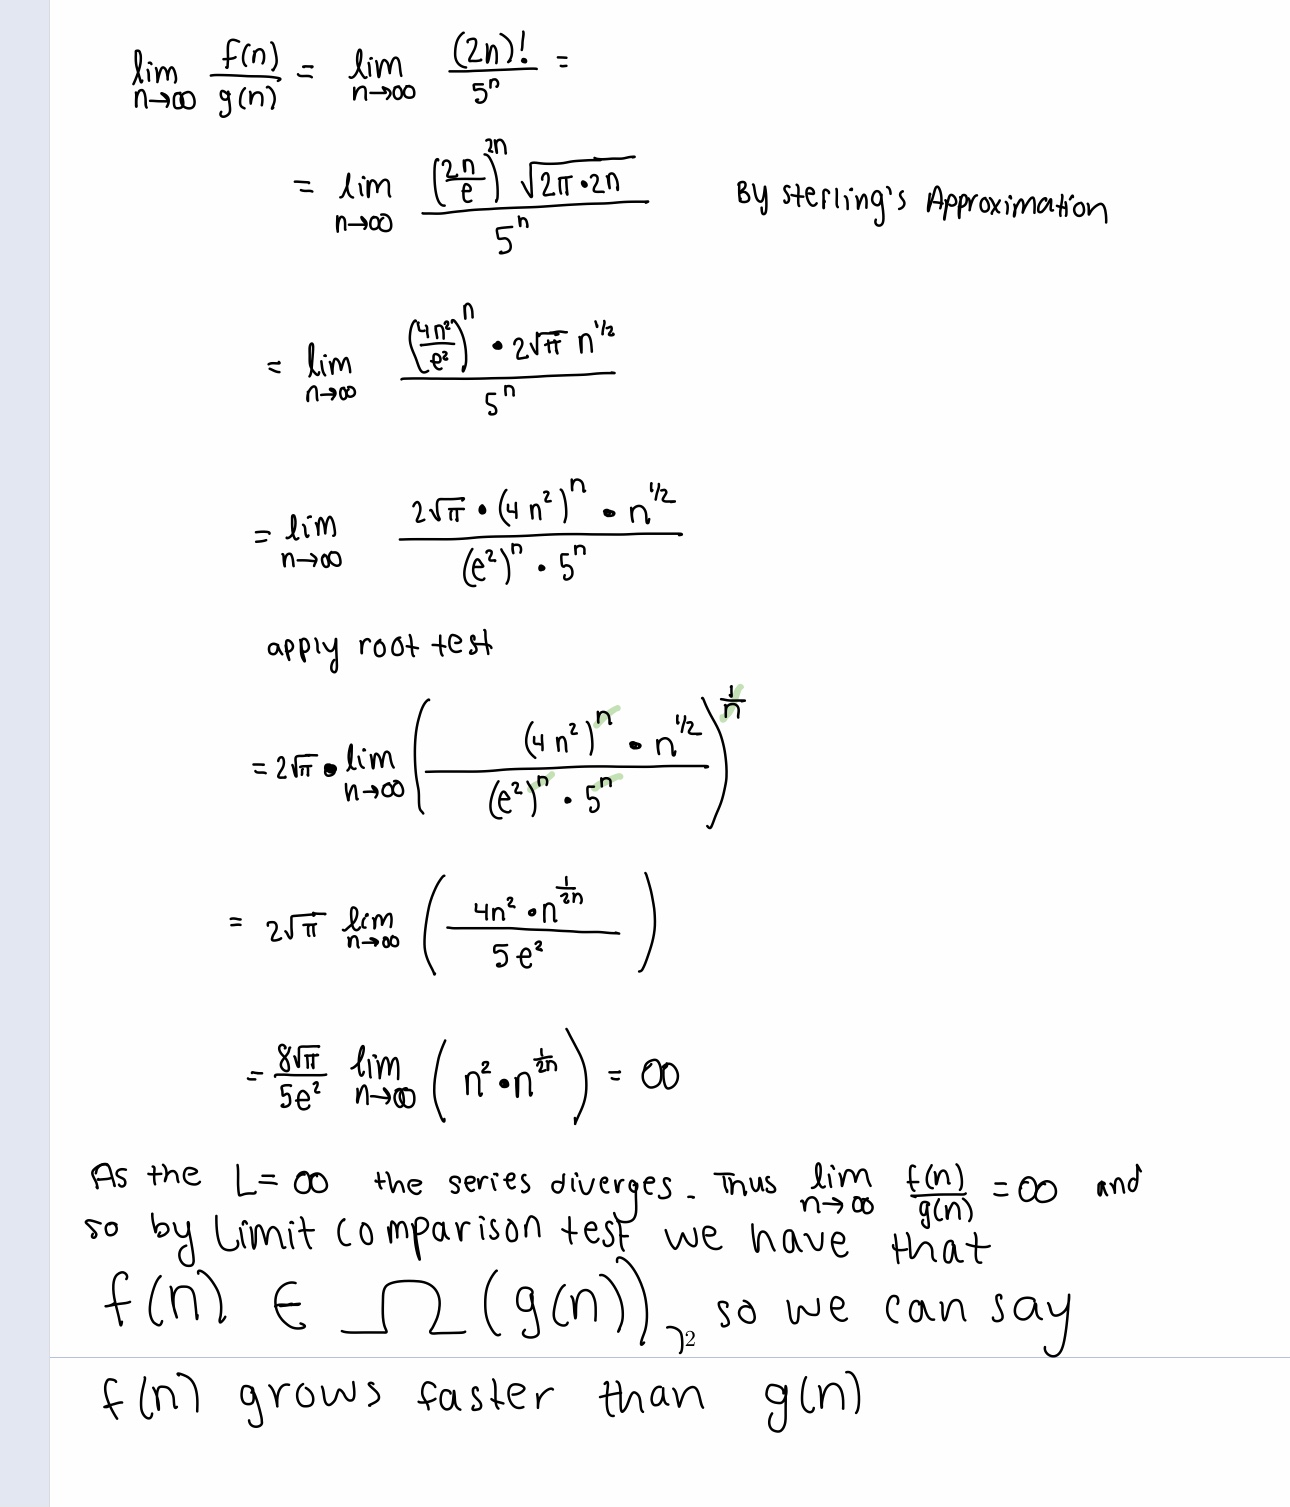 lim n→∞ f(n)/g(n) = lim n→∞ (2n)!/5ⁿ =
= lim n→∞ (2n/e)²ⁿ √(2π•2n) / 5ⁿ By sterling's Approximation
= lim n→∞ (4n²/e²)ⁿ • 2√π n^(1/2) / 5ⁿ
= lim n→∞ 2√π • (4n²)ⁿ • n^(1/2) / (e²)ⁿ • 5ⁿ
apply root test
= 2√π • lim n→∞ ( (4n²)ⁿ • n^(1/2) / (e²)ⁿ • 5ⁿ )^(1/n)
= 2√π lim n→∞ ( 4n² • n^(1/2n) / 5e² )
= 8√π/5e² lim n→∞ ( n² • n^(1/2n) ) = ∞
As the L = ∞ the series diverges. Thus lim n→∞ f(n)/g(n) = ∞ and
so by Limit comparison test we have that
f(n) ∈ Ω(g(n)), so we can say
2
f(n) grows faster than g(n)